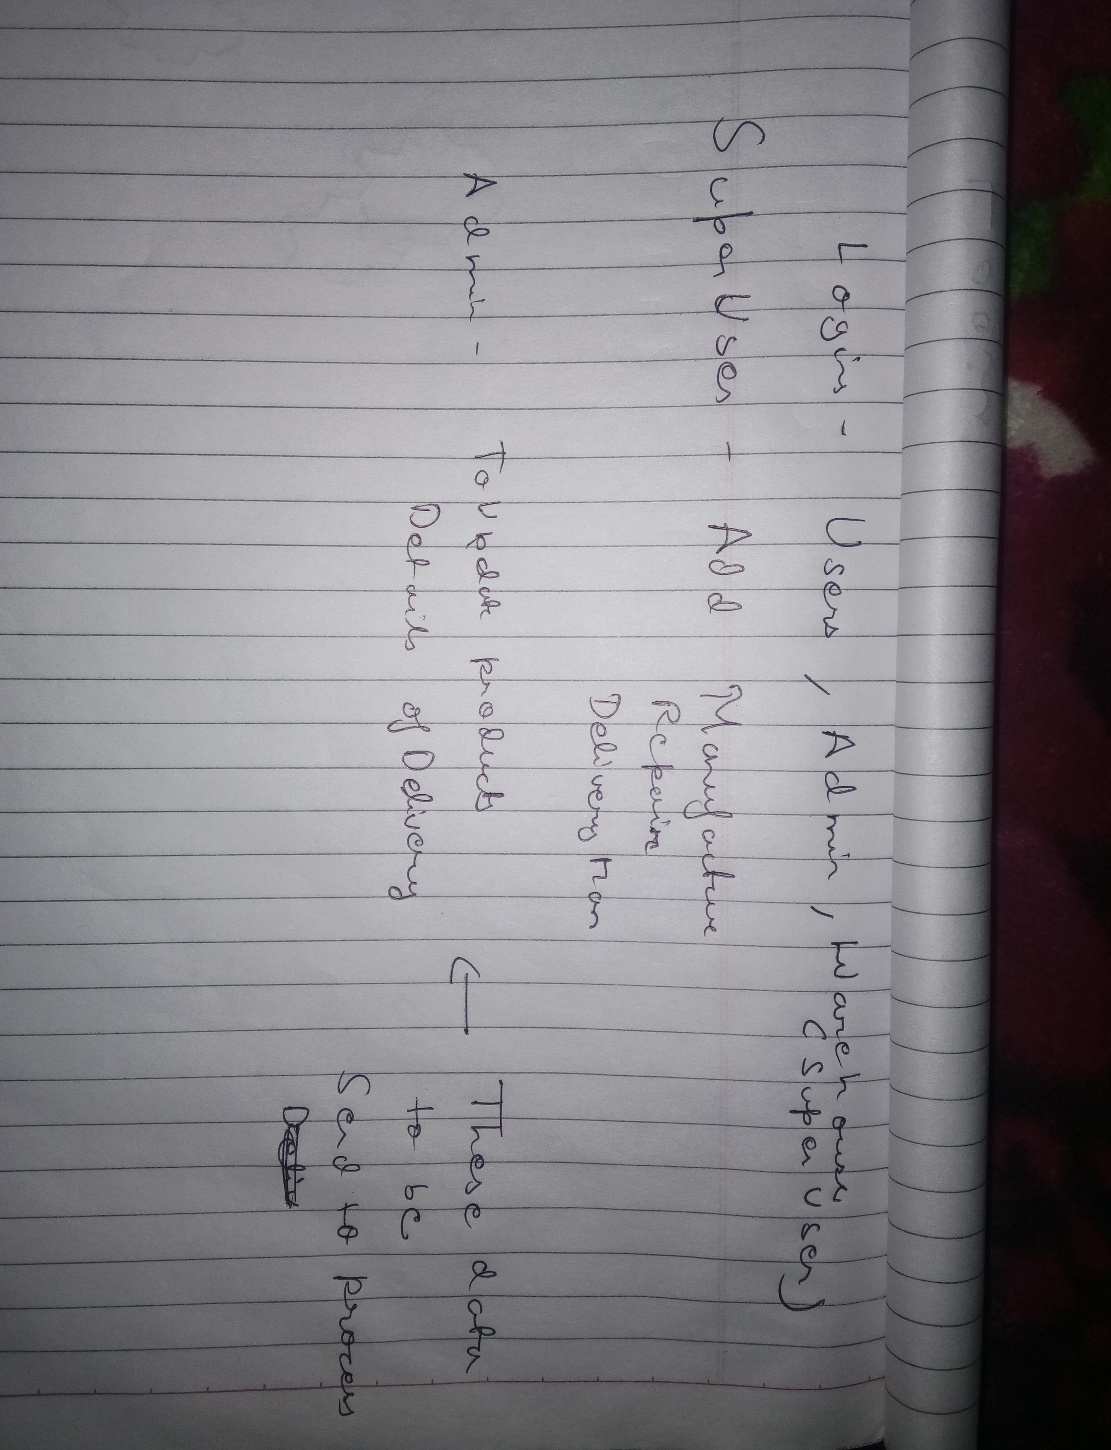 Login - Users, Admin, Warehouse
(Super User)
Super User - Add Manufacture
Repairs
Delivery Man
Admin - To Update products
Details of Delivery
These data
to be
Send to process